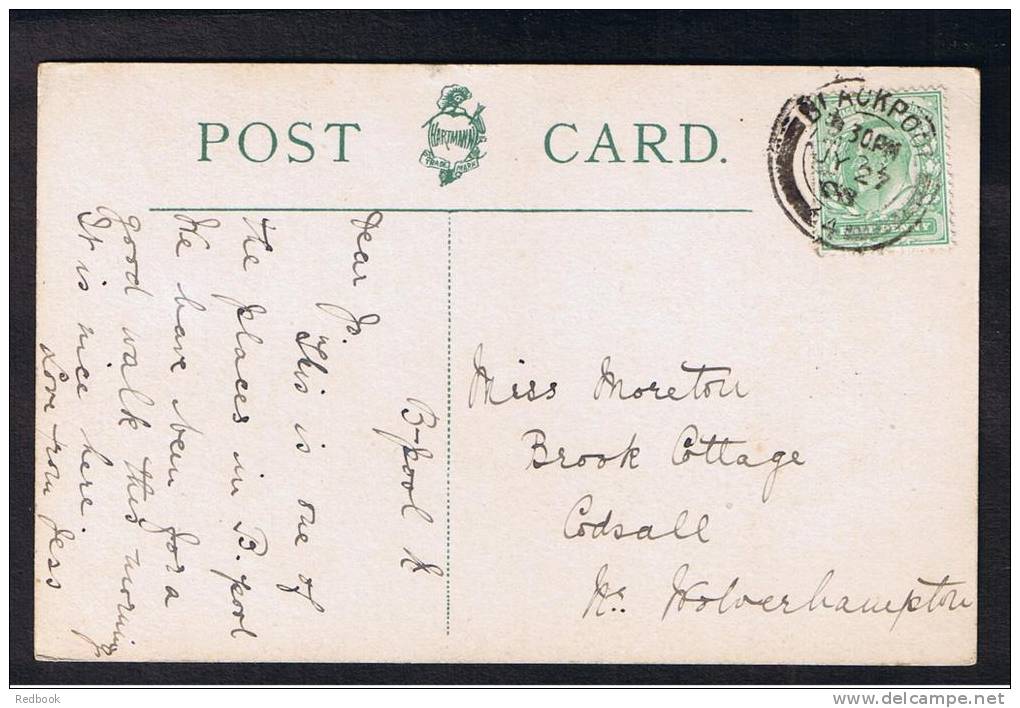 POST CARD.
HARTMANN
TRADE MARK
BLACKPOOL
30PM
JY 27
HALF PENNY
B-pool
Dear Jo.
This is one of
the places in B. pool
We have been for a
good walk this morning
It is nice here.
Love from Jess
Miss Moreton
Brook Cottage
Codsall
Nr. Wolverhampton
Redbook
www.delcampe.net